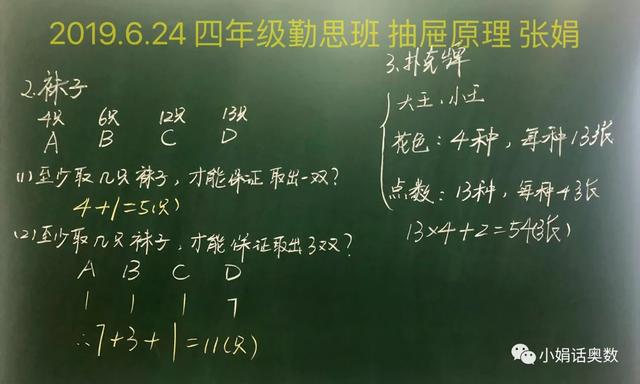 2019.6.24 四年级勤思班 抽屉原理 张娟
2.袜子
4只 6只 12只 13只
A B C D
(1)至少取几只袜子，才能保证取出一双？
4+1=5(只)
(2)至少取几只袜子，才能保证取出3双？
A B C D
1 1 1 7
∴7+3+1=11(只)
3.扑克牌
大王、小王
花色：4种，每种13张
点数：13种，每种4张
13×4+2=54(张)
小娟话奥数